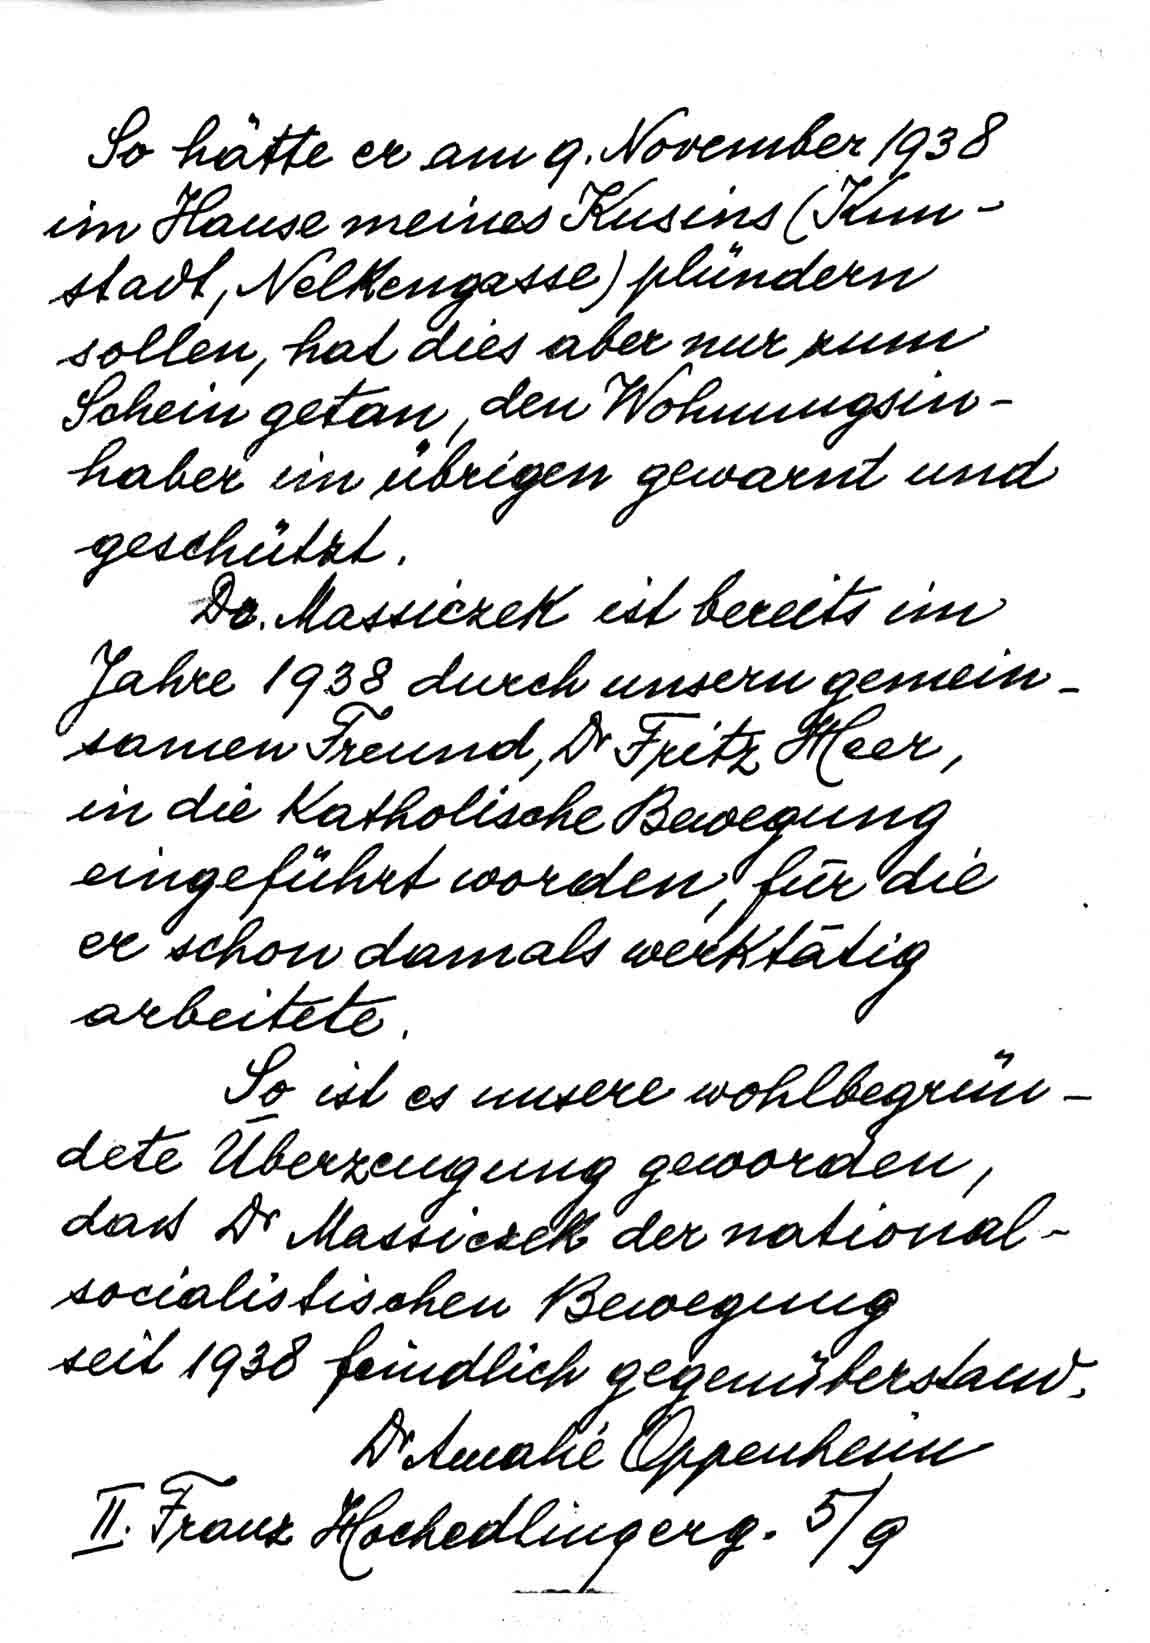 So hätte er am 9. November 1938
im Hause meines Kusins (Kun-
stadt, Nelkengasse) plündern
sollen, hat dies aber nur zum
Schein getan, den Wohnungsin-
haber im übrigen gewarnt und
geschützt.
Dr. Massiczek ist bereits im
Jahre 1938 durch unsern gemein-
samen Freund, Dr Fritz Heer,
in die Katholische Bewegung
eingeführt worden, für die
er schon damals werktätig
arbeitete.
So ist es unsere wohlbegrün-
dete Überzeugung geworden,
daß Dr Massiczek der national-
socialistischen Bewegung
seit 1938 feindlich gegenüberstand.
Dr Amalie Oppenheim
II. Franz Hochedlingerg. 5/9